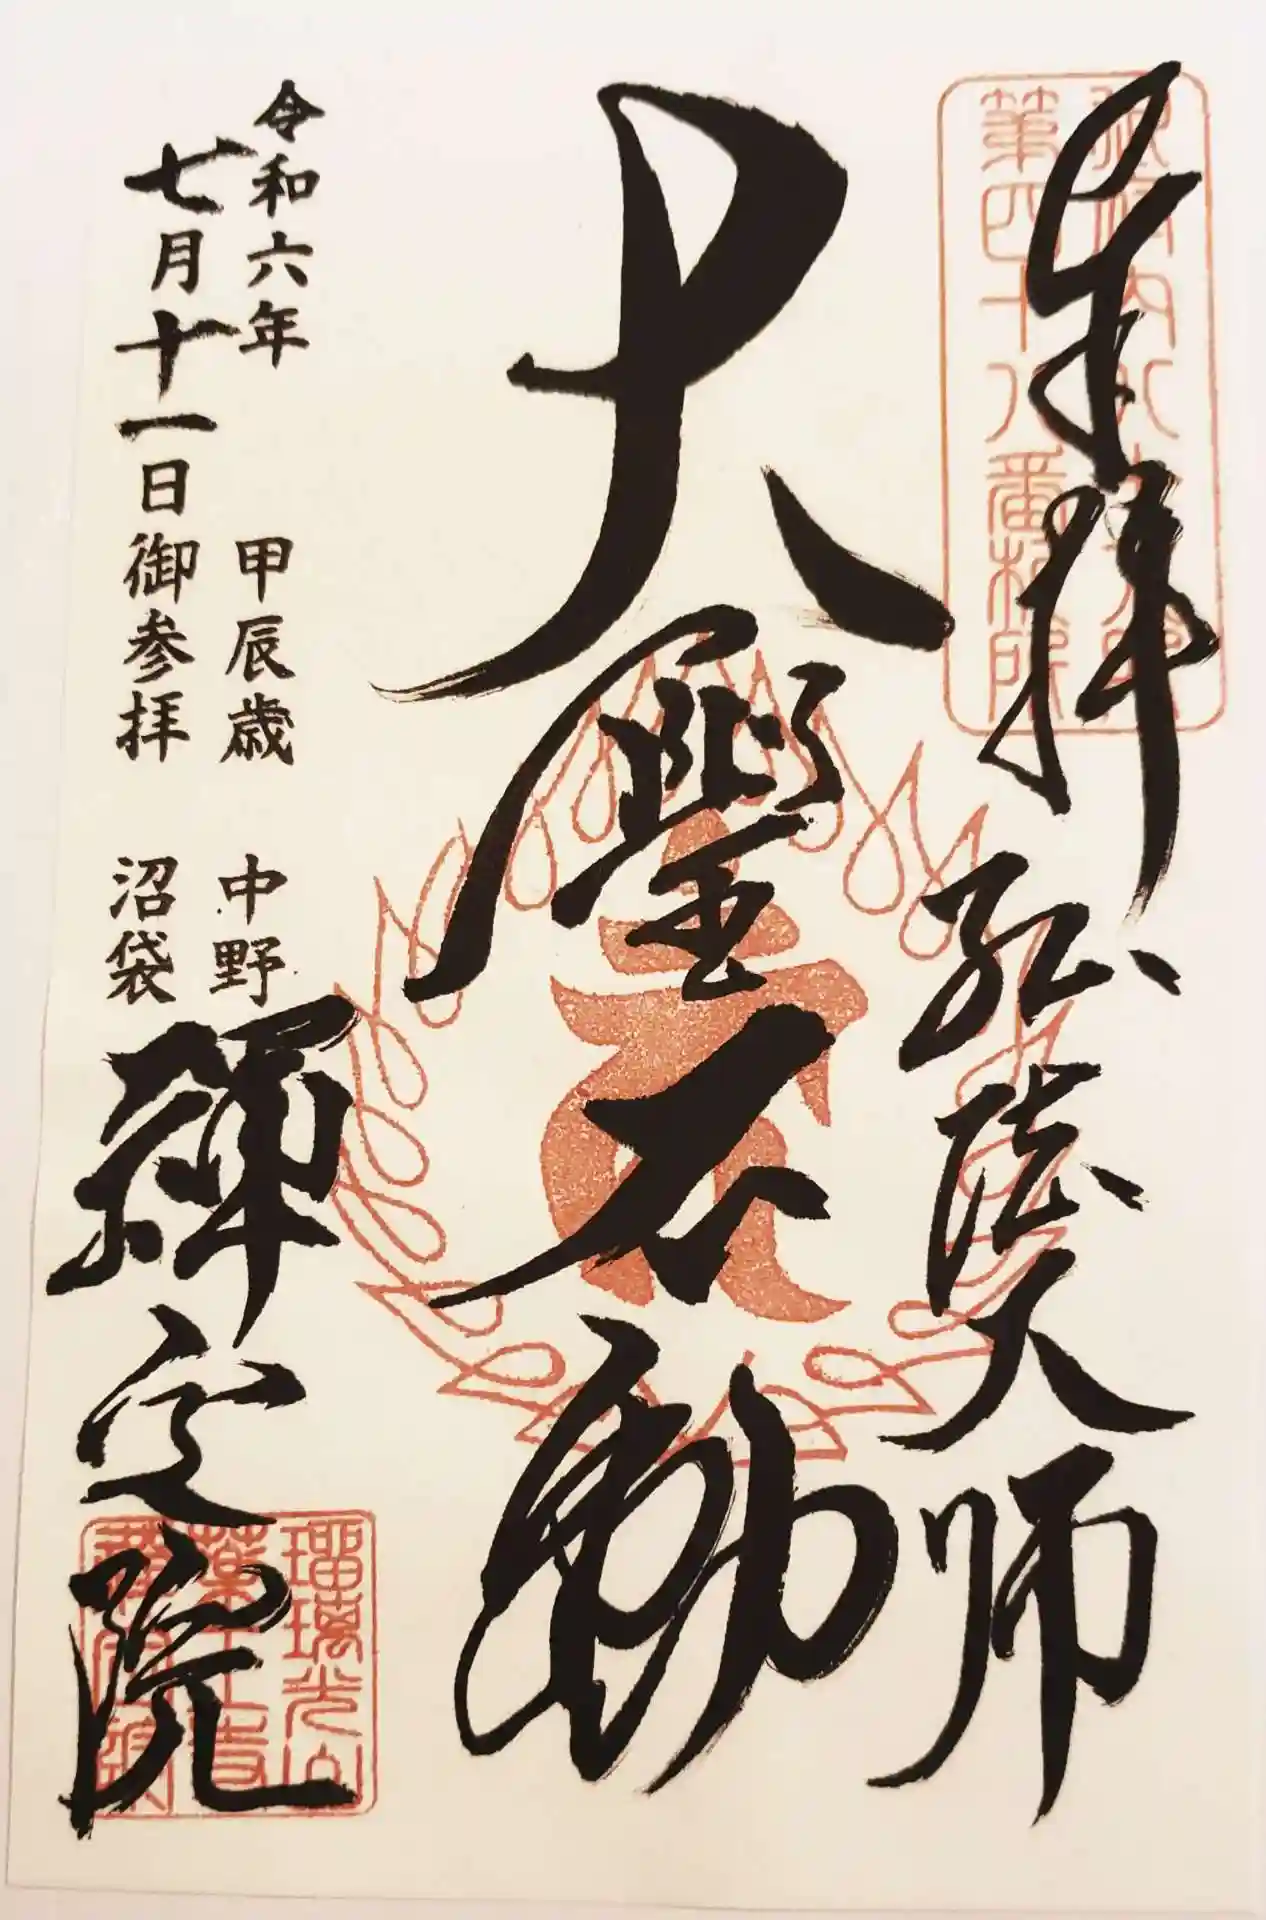 奉拝
弘法大師
大聖不動
令和六年 甲辰歳 中野
七月十一日御参拝 沼袋
禅定院
第四十八番札所
瑠璃光山
薬王寺